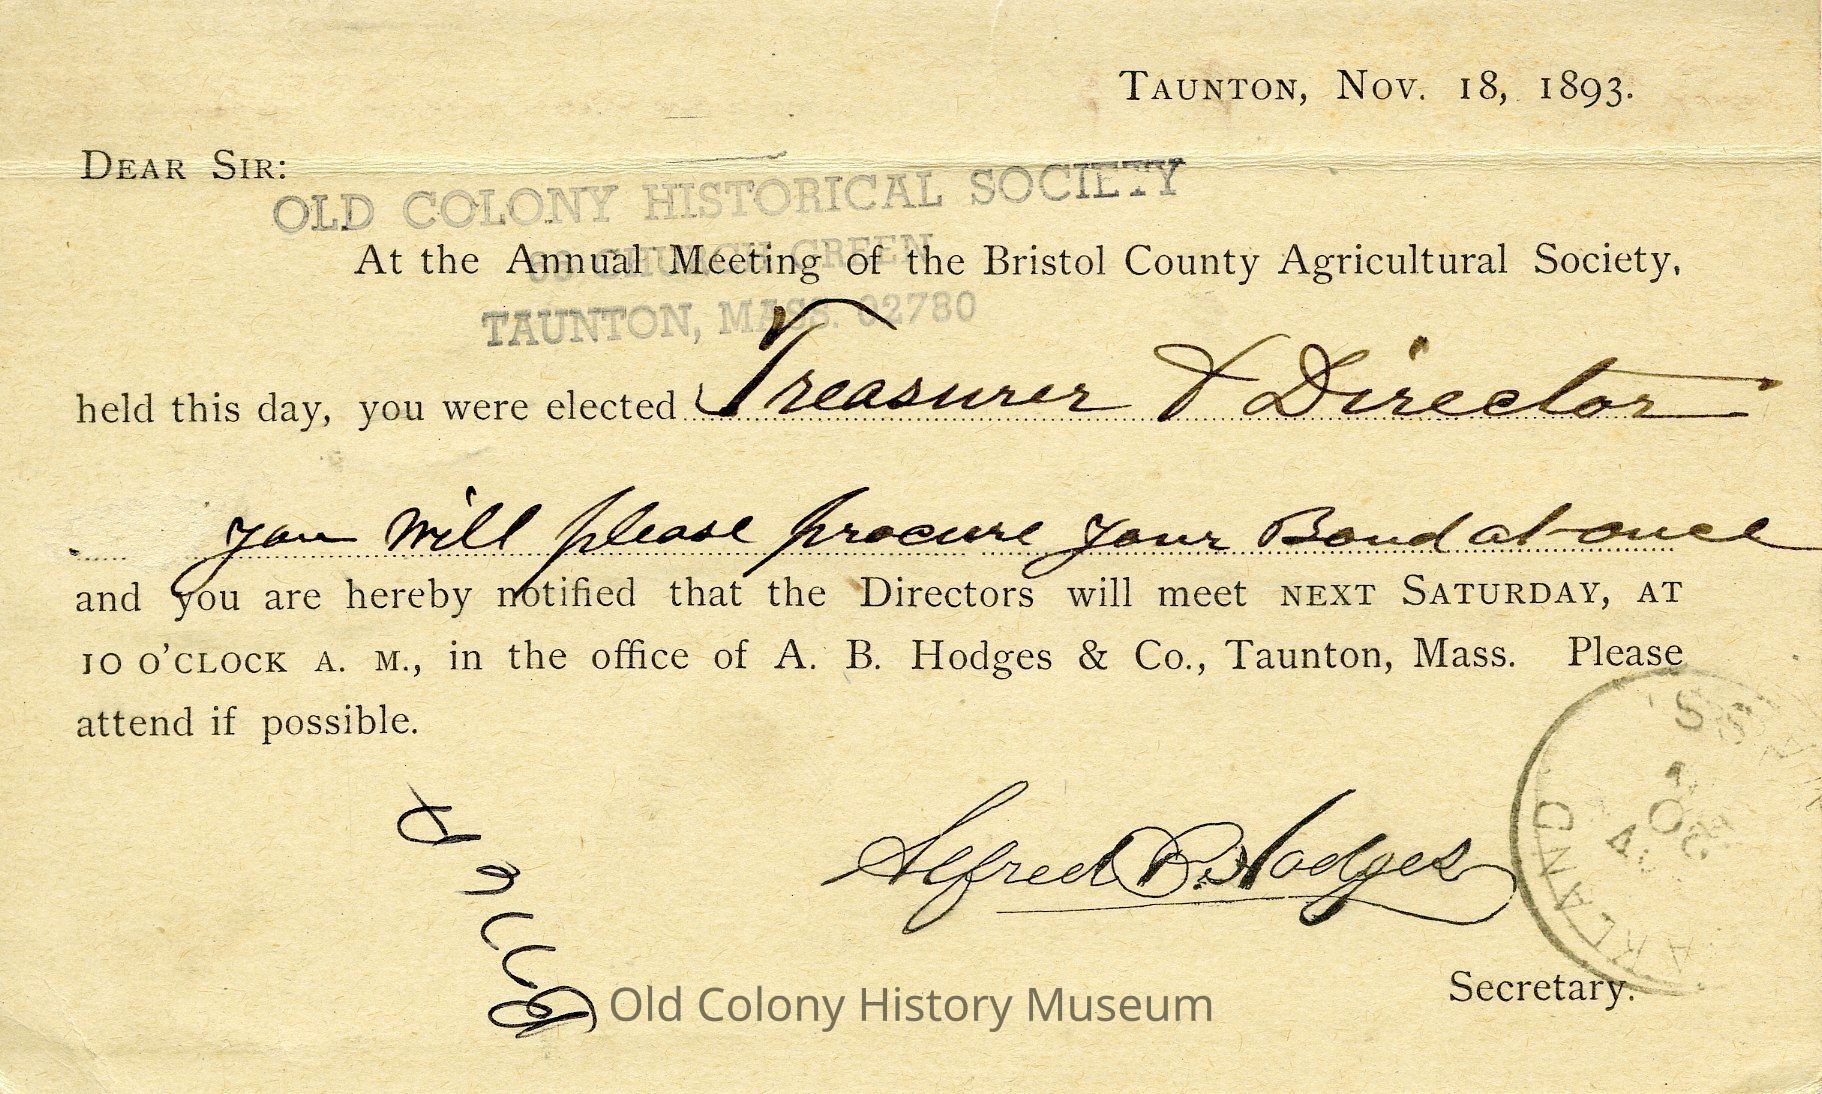 TAUNTON, NOV. 18, 1893.
DEAR SIR:
OLD COLONY HISTORICAL SOCIETY
66 CHURCH GREEN
TAUNTON, MASS. 02780
At the Annual Meeting of the Bristol County Agricultural Society,
held this day, you were elected Treasurer & Director
you will please procure your Bond at once
and you are hereby notified that the Directors will meet NEXT SATURDAY, AT
10 O'CLOCK A. M., in the office of A. B. Hodges & Co., Taunton, Mass. Please
attend if possible.
Alfred B. Hodges
Secretary.
Old Colony History Museum